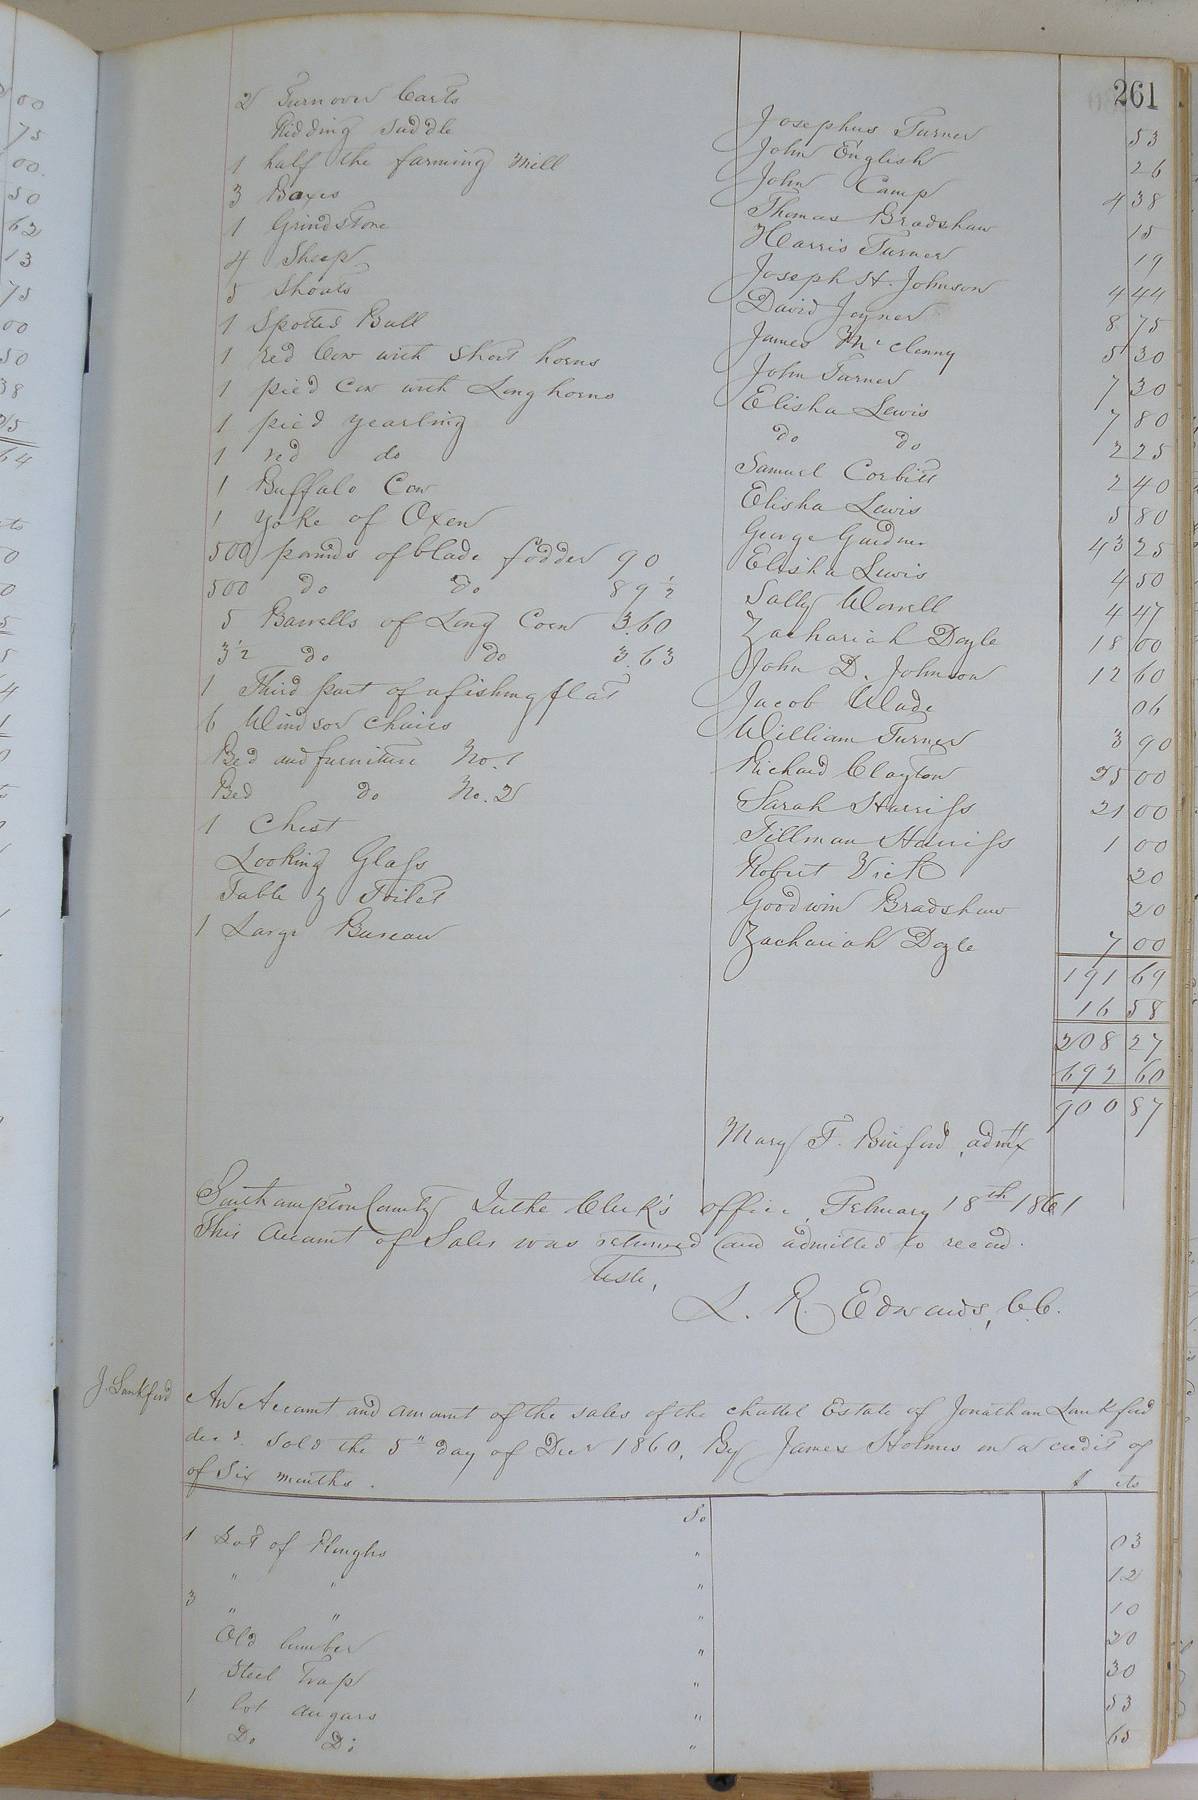 261
2 Turnover Carts Josephus Turner 53
Ridding Saddle John English 26
1 half the farming Mill John Camp 4 38
3 Boxes Thomas Bradshaw 15
1 Grindstone Harris Turner 19
4 Sheep Joseph H. Johnson 4 44
5 Shoats David Joyner 8 75
1 Spotted Bull James McClenny 5 30
1 red Cow with Short horns John Turner 7 30
1 pied Cow with Long horns Elisha Lewis 7 80
1 pied yearling do do 2 25
1 red do Samuel Corbitt 2 40
1 Buffalo Cow Elisha Lewis 5 80
1 yoke of Oxen George Gardner 43 25
500 pounds of blade fodder 90 Elisha Lewis 4 50
500 do do 89½ Sally Worrell 4 47
5 Barrells of Long Corn 3.60 Zachariah Doyle 18 00
3½ do do 3.63 John D. Johnson 12 60
1 Third part of a fishing flat Jacob Wade 06
6 Windsor Chairs William Turner 3 90
Bed and furniture No. 1 Richard Clayton 25 00
Bed do No. 2 Sarah Harriss 21 00
1 Chest Tillman Harriss 1 00
Looking Glass Robert Vick 20
Table & Toilet Goodwin Bradshaw 20
1 Large Bureau Zachariah Doyle 7 00
191 69
16 58
208 27
692 60
900 87
Mary F. Binford, admx
Southampton County In the Clerk's office, February 18th 1861
This Account of Sales was returned and admitted to record.
Teste,
L. R. Edwards, C.C.
J. Lankford
An Account and amount of the sales of the chattel Estate of Jonathan Lankford
decd. Sold the 5" day of Decr 1860, By James Holmes on a credit of
of Six months. $ cts
1 Lot of Ploughs " 03
" " " 12
3 " " " 10
Old lumber " 20
Steel Trap " 30
1 lot augars " 53
Do Do " 65